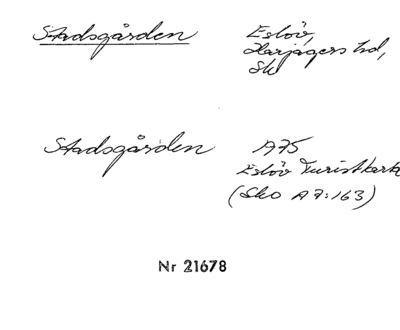 Stadsgården
Eslöv,
Harjagers hd,
Sk
Stadsgården
A75
Eslöv Turistkarta
(Sko A7:163)
Nr 21678